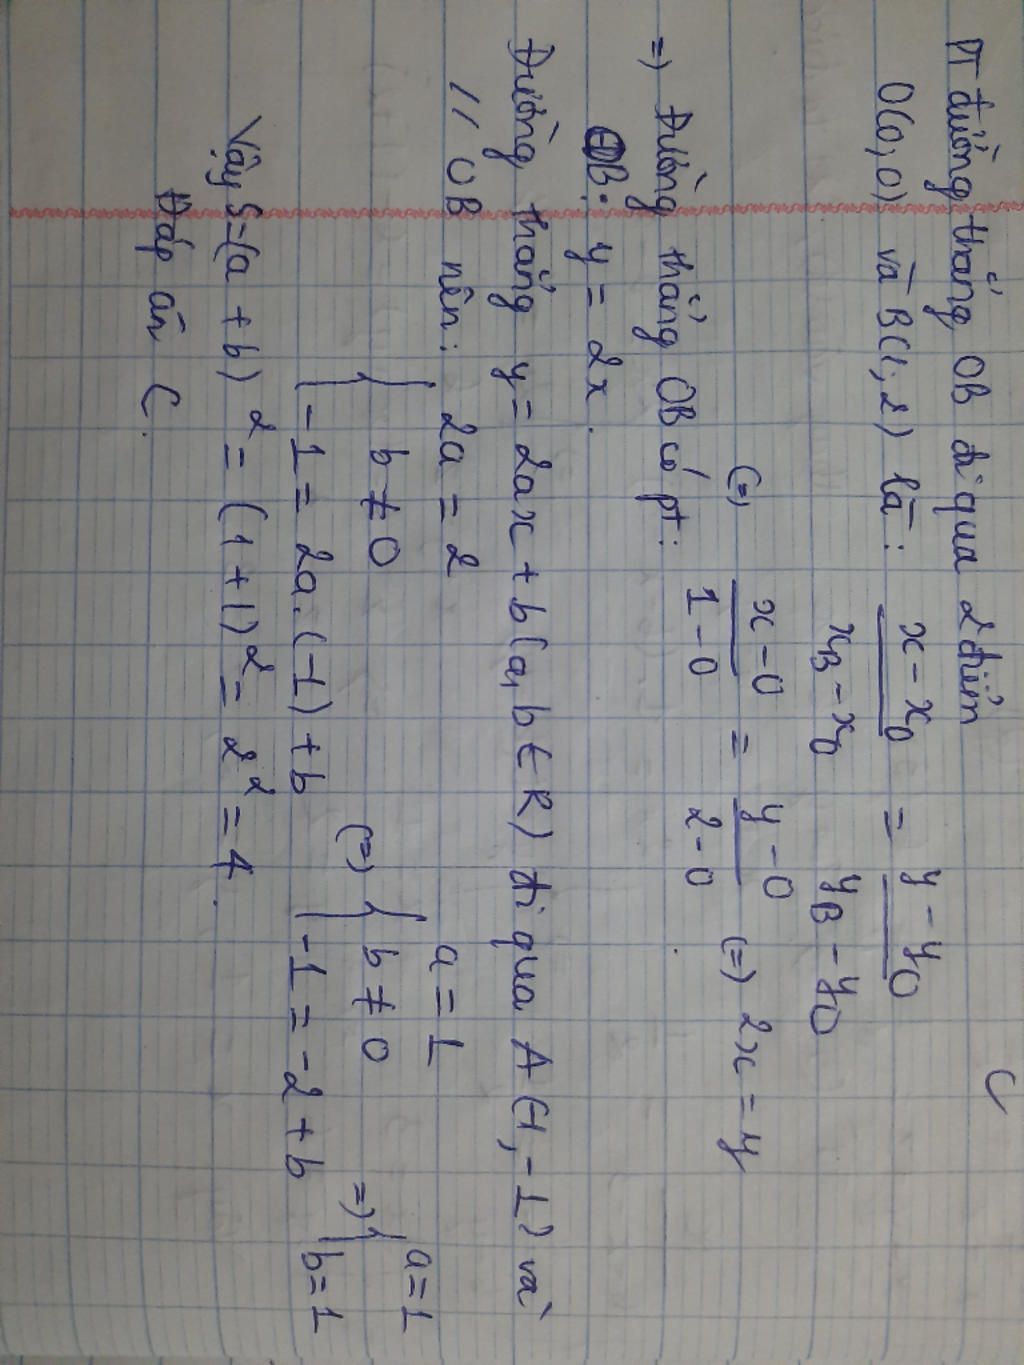 C
PT đường thẳng OB đi qua 2 điểm
O(0,0) và B(1,2) là: x - x₀ / x_B - x₀ = y - y₀ / y_B - y₀
(=) x-0 / 1-0 = y-0 / 2-0 (=) 2x = y
=) Đường thẳng OB có pt:
OB: y = 2x.
Đường thẳng y = 2ax + b (a, b ∈ R) đi qua A(-1, -1) và
// OB nên: { 2a = 2 (=) { a = 1 =) { a = 1
b ≠ 0 b ≠ 0 b = 1
-1 = 2a.(-1) + b -1 = -2 + b
Vậy S = (a + b)² = (1 + 1)² = 2² = 4.
Đáp án C.